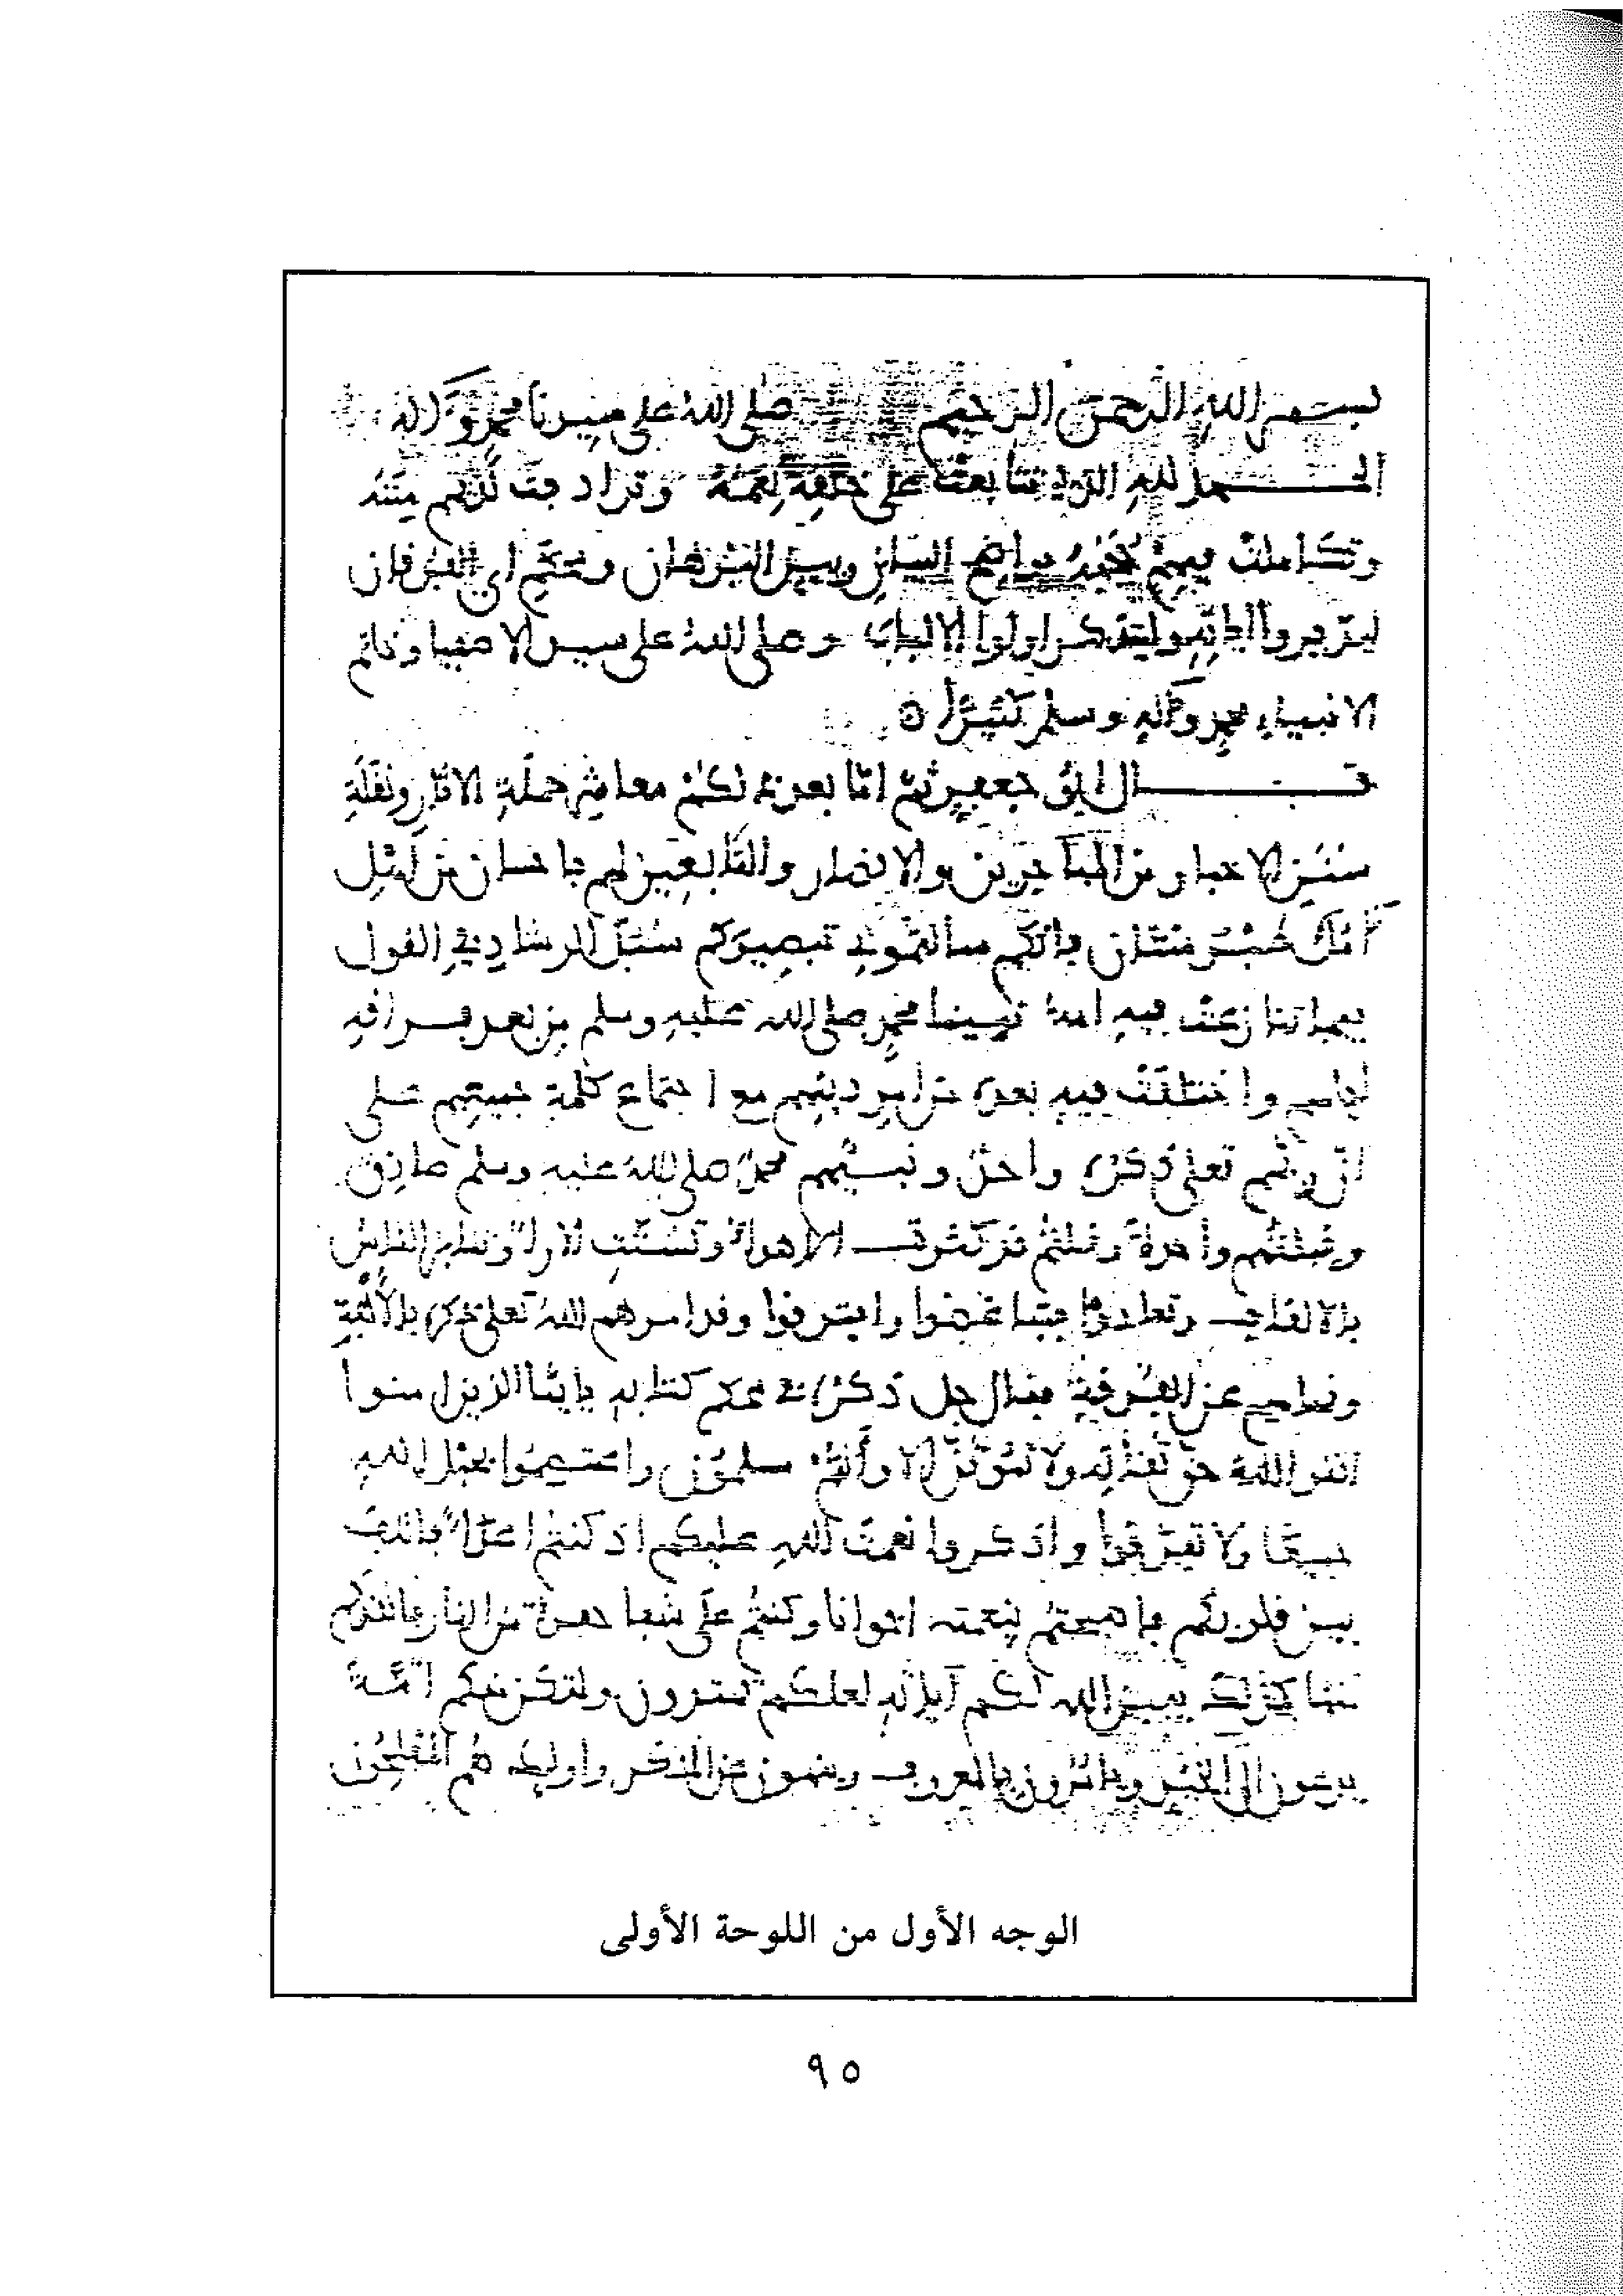 بسم الله الرحمن الرحيم صلى الله على سيدنا محمد وآله
الحمد لله الذي تتابعت على خلقه نعمه وترادفت لديهم مننه
وتكاملت فيهم حججه بواضح البيان وبين البرهان ومحكم آي الفرقان
ليدبروا آياته وليتذكر اولوا الالباب وصلى الله على سيد الاصفيا وخاتم
الانبياء محمد وآله وسلم كثيرا
قال ابو جعفر ثم اما بعد لكم معاشر حملة الاثار ونقلة
سنن الاخبار من المهاجرين والانصار والتابعين لهم باحسان من اهل
آمل طبرستان فانكم سالتموني تبصيركم سبل الرشاد في القول
فيما تنازعت فيه امة نبينا محمد صلى الله عليه وسلم من بعد فراقه
اياهم واختلفت فيه بعده من امر دينهم مع اجتماع كلمة جميعهم على
ان ربهم تعلى ذكره واحد ونبيهم محمد صلى الله عليه وسلم صادق
وقبلتهم واحدة وقلتم قد كثرت الاهواء وتشتت الاراء وتنابز الناس
بالالقاب وتعادوا فتباغضوا وافترقوا وقد امرهم الله تعلى ذكره بالالفة
ونهاهم عن الفرقة فقال جل ذكره في محكم كتابه يايها الذين امنوا
اتقوا الله حق تقاته ولا تموتن الا وأنتم مسلمون واعتصموا بحبل الله
جميعا ولا تفرقوا واذكروا نعمت الله عليكم اذ كنتم اعداء فالف
بين قلوبكم فاصبحتم بنعمته اخوانا وكنتم على شفا حفرة من النار فانقذكم
منها كذلك يبين الله لكم آياته لعلكم تهتدون ولتكن منكم امة
يدعون الى الخير ويامرون بالمعروف وينهون عن المنكر واوليك هم المفلحون
الوجه الأول من اللوحة الأولى
٩٥